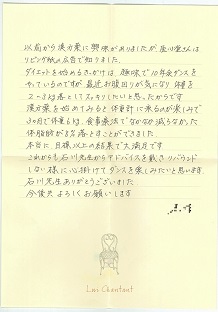 以前から漢方薬に興味がありましたが石川堂さんは
リビング紙の広告で知りました。
ダイエットを始めるきっかけは、趣味で10年余ダンスを
やっているのですが最近お腹回りが気になり体重を
2〜3kg落としてスッキリしたいと思ったからです
漢方薬を始めてみると体重計に乗るのが楽しみで
3ヵ月で体重6kg、食事療法でなかなか減らなかった
体脂肪が8%落とすことができました。
本当に目標以上の結果で大満足です
これからも石川先生からアドバイスを戴きリバウンド
しない様に心掛けてダンスを楽しみたいと思います。
石川先生ありがとうございました
今後共よろしくお願いします
Lui Chantant